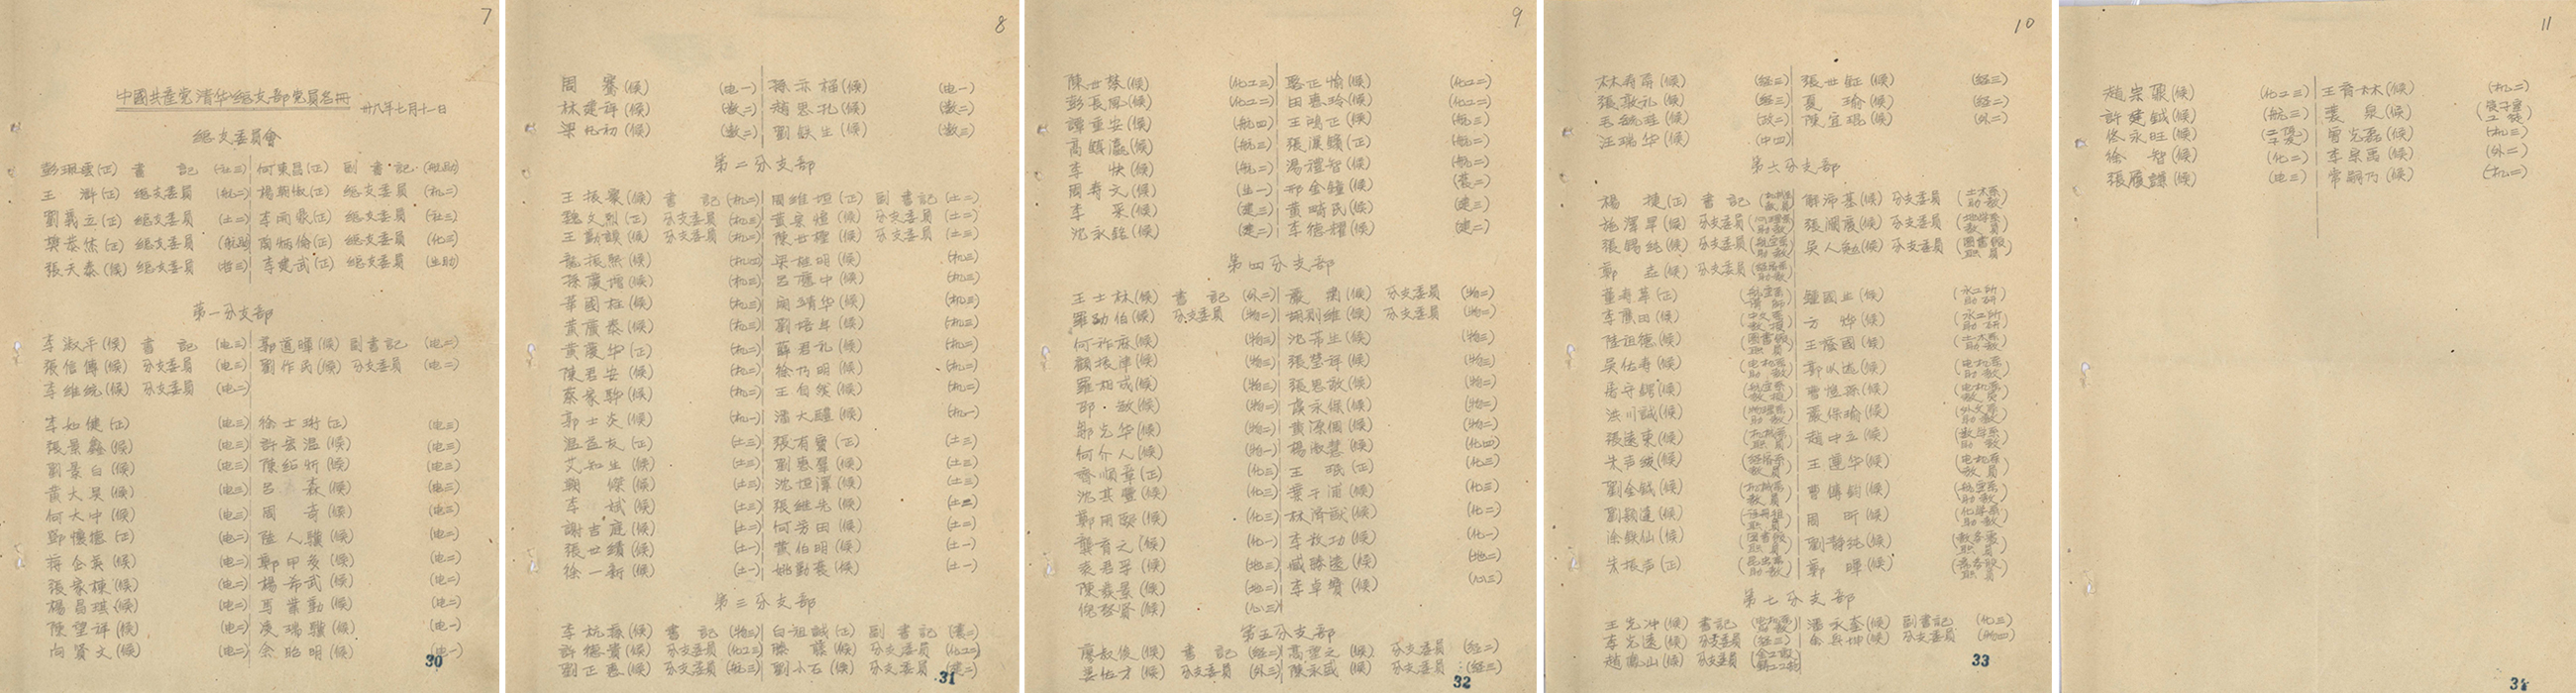 7
中國共產党清华總支部党員名冊
卅八年七月十一日
總支委員會
彭珮雲(正) 書 記 (社三) 何東昌(正) 副書記 (航助)
王 滸(正) 總支委員 (航二) 楊朝俶(正) 總支委員 (机二)
劉義立(正) 總支委員 (土二) (正) 總支委員 (社三)
樊恭烋(正) 總支委員 (航助) (正) 總支委員 (化三)
張天泰(候) 總支委員 (哲三) 李建武(正) 總支委員 (生助)
第一分支部
李淑平(候) 書 記 (电三) 郭道暉(候) 副書記 (电二)
張信傳(候) 分支委員 (电三) 劉作民(候) 分支委員 (电二)
李維統(候) 分支委員 (电二)
(正) (电三) 徐士珩(正) (电三)
張景鑫(候) (电三) 許宏温(候) (电三)
劉景白(候) (电三) (候) (电三)
黃大昊(候) (电三) 呂 森(候) (电三)
何大中(候) (电三) 周 奇(候) (电三)
鄧懷德(正) (电二) 陸人驥(候) (电二)
蒋企英(候) (电二) (候) (电二)
張家棟(候) (电二) 楊希武(候) (电二)
楊昌琪(候) (电二) 馬業勤(候) (电二)
陳望祥(候) (电二) 凌瑞驥(候) (电一)
向賢文(候) (电二) 余昭明(候) (电一)
30
8
周 (候) (电一) 孫亦樞(候) (电一)
林建祥(候) (数二) 趙思孔(候) (数二)
梁允初(候) (数二) 劉鉄生(候) (数三)
第二分支部
王振寰(候) 書 記 (机二) 周維垣(正) 副書記 (土二)
魏文烈(正) 分支委員 (机三) (候) 分支委員 (土二)
王勤謨(候) 分支委員 (机二) 陳世權(候) 分支委員 (土三)
龍振熙(候) (机四) 梁桂明(候) (机三)
孫慶增(候) (机三) 呂應中(候) (机三)
華國柱(候) (机三) 周靖华(候) (机三)
黃慶泰(候) (机三) 劉培年(候) (机三)
黃慶华(正) (机二) 薛君礼(候) (机二)
陳君安(候) (机二) 徐乃明(候) (机二)
蔡家駒(候) (机二) 王自钱(候) (机二)
郭士炎(候) (机一) 潘大鏸(候) (机一)
温益友(正) (土三) 張有實(正) (土三)
艾知生(候) (土三) 劉惠羣(候) (土三)
(候) (土三) 沈恒澤(候) (土三)
李 斌(候) (土三) 張維先(候) (土三)
謝吉庭(候) (土二) 何芳田(候) (土二)
張世績(候) (土一) 黃伯明(候) (土一)
徐一新(候) (土一) 姚勤農(候) (土一)
第三分支部
李杭蓀(候) 書 記 (物三) 白祖誠(正) 副書記
許德貴(候) 分支委員 (化工三) 滕 藤(候) 分支委員 (化工二)
劉正惠(候) 分支委員 (航三) 劉小石(候) 分支委員 (建二)
31
9
陳世棻(候) (化工三) (正) (候) (化工二)
彭長風(候) (化工二) 田惠玲(候) (化工二)
譚垂安(候) (航四) 王鴻正(候) (航三)
高鎮瀛(候) (航二) 張漢鎮(正) (航二)
李 快(候) (航二) 馮禮智(候) (航二)
周寿文(候) (土一) 邢金鐘(候)
李 采(候) (建三) 黃畸民(候) (建三)
沈永銘(候) (建二) 李德耀(候) (建二)
第四分支部
王士林(候) 書 記 (外二) 嚴 (候) 分支委員 (物二)
羅劭伯(候) 分支委員 (物二) 胡則維(候) 分支委員 (物二)
何祚庥(候) (物三) 沈芾生(候) (物三)
顧振律(候) (物三) 張塋祥(候) (物三)
羅相成(候) (物二) 張思敬(候) (物二)
邵 敏(候) (物二) 虞永保(候) (物二)
鄭光华(候) (物二) 黃深個(候) (物二)
何介人(候) (物一) 楊淑慧(候) (化四)
齊順章(正) (化三) 王 珉(正) (化三)
沈其豐(候) (化三) 葉于浦(候) (化三)
鄭用熙(候) (化三) 林濟猷(候) (化二)
龔育之(候) (化一) 李敦功(候) (化一)
袁君孚(候) (地三) 戚勝遠(候) (地二)
陳養景(候) (地二) 李卓寶(候) (心三)
倪啓賢(候) (心三)
第五分支部
廖叔俊(候) 書 記 (經二) 高望之(候) 分支委員 (經二)
裴佐才(候) 分支委員 (外三) 陳永盛(候) 分支委員 (經三)
32
10
林寿屏(候) (經三) 張世鉦(候) (經三)
張敦礼(候) (經三) 夏 瑜(候) (經二)
毛毓珪(候) (政二) 陳宜琨(候) (外二)
汪瑞华(候) (中四)
第六分支部
楊 捷(正) 書 記 (机械系教員) 解沛基(候) 分支委員 (土木系助教)
施澤犀(候) 分支委員 張瀾慶(候) 分支委員 (地學系助教)
張錫純(候) 分支委員 (航空系助教) 吳人勉(候) 分支委員 (圖書館職員)
鄭 垚(候) 分支委員 (經濟系助教)
董寿莘(正) (航空系講師) 鐘國生(候) (水工所助研)
李廣田(候) (中文系教授) 方 燁(候) (水工所助研)
陸祖德(候) (圖書館職員) 王蔭國(候) (土木系助教)
吳佑寿(候) (电机系助教) 郭以連(候) (电机系助教)
屠守鍔(候) (航空系教授) 曹惟孫(候) (电机系助教)
洪川誠(候) (物理系助教) 嚴保瑜(候) (外文系助教)
張遠東(候) 趙中立(候) (數學系助教)
朱声绂(候) (經濟系教員) 王遵华(候) (电机系教員)
劉金鉞(候) (机械系教員) 曹傳鈞(候) (航空系助教)
劉頴達(候) (註冊組職員) 周 昕(候) (化學系助教)
涂鉄仙(候) (圖書館職員) 劉静純(候) (教務處職員)
朱振声(正) 鄭 暉(候)
第七分支部
王先冲(候) 書 記 (电机系教授) 潘永奎(候) 副書記 (化三)
李先逵(候) 分支委員 (經三) 余興坤(候) 分支委員 (物二)
趙鳳山(候) 分支委員
33
11
趙宗鼐(候) (化工三) 王育林(候) (机二)
許建鉞(候) (航三) 裴 泉(候)
佟永旺(候) 曾克磊(候) (机三)
徐 智(候) (化二) 李宗禹(候) (外二)
張履謙(候) (电三) 常嗣乃(候) (机二)
34